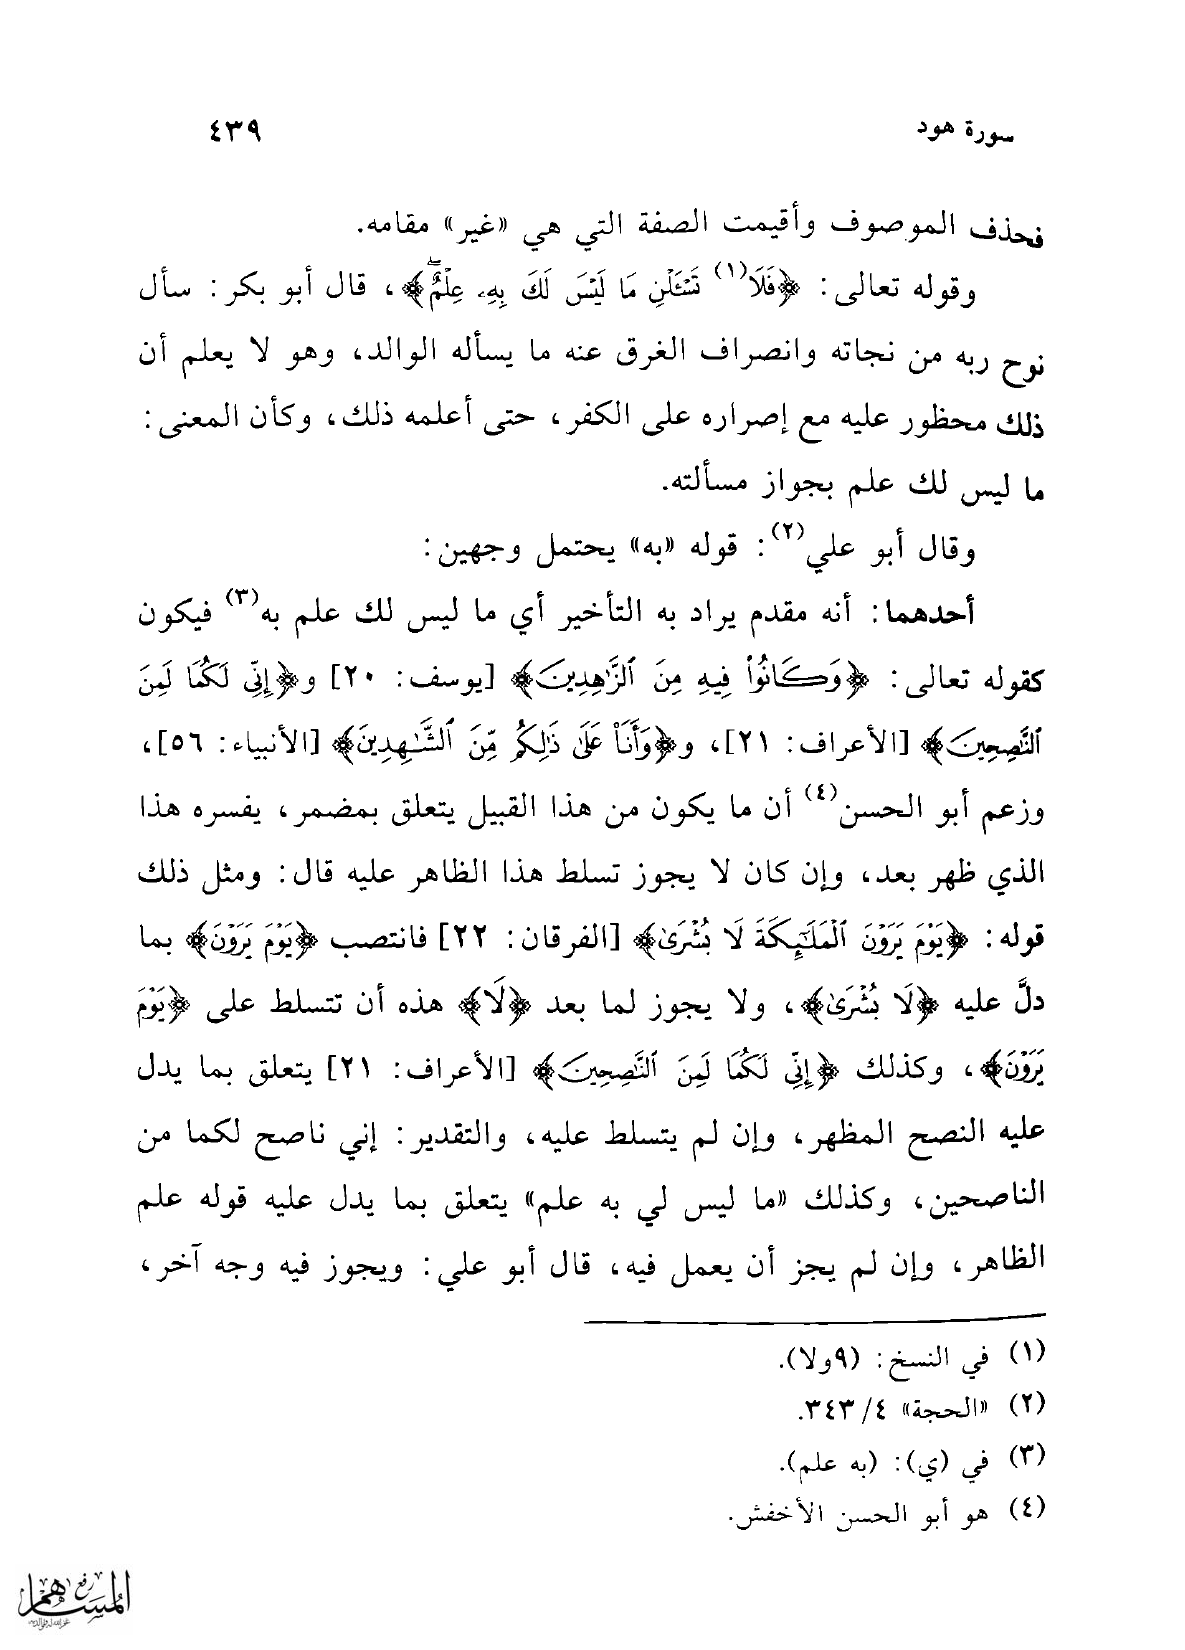 سورة هود ٤٣٩
فحذف الموصوف وأقيمت الصفة التي هي «غير» مقامه.
وقوله تعالى: ﴿فَلَا(١) تَسْـَٔلْنِ مَا لَيْسَ لَكَ بِهِۦ عِلْمٌۖ﴾، قال أبو بكر: سأل
نوح ربه من نجاته وانصراف الغرق عنه ما يسأله الوالد، وهو لا يعلم أن
ذلك محظور عليه مع إصراره على الكفر، حتى أعلمه ذلك، وكأن المعنى:
ما ليس لك علم بجواز مسألته.
وقال أبو علي(٢): قوله «به» يحتمل وجهين:
أحدهما: أنه مقدم يراد به التأخير أي ما ليس لك علم به(٣) فيكون
كقوله تعالى: ﴿وَكَانُوا۟ فِيهِ مِنَ ٱلزَّٰهِدِينَ﴾ [يوسف: ٢٠] و﴿إِنِّى لَكُمَا لَمِنَ
ٱلنَّٰصِحِينَ﴾ [الأعراف: ٢١]، و﴿وَأَنَا۠ عَلَىٰ ذَٰلِكُم مِّنَ ٱلشَّٰهِدِينَ﴾ [الأنبياء: ٥٦]،
وزعم أبو الحسن(٤) أن ما يكون من هذا القبيل يتعلق بمضمر، يفسره هذا
الذي ظهر بعد، وإن كان لا يجوز تسلط هذا الظاهر عليه قال: ومثل ذلك
قوله: ﴿يَوْمَ يَرَوْنَ ٱلْمَلَٰٓئِكَةَ لَا بُشْرَىٰ﴾ [الفرقان: ٢٢] فانتصب ﴿يَوْمَ يَرَوْنَ﴾ بما
دلَّ عليه ﴿لَا بُشْرَىٰ﴾، ولا يجوز لما بعد ﴿لَا﴾ هذه أن تتسلط على ﴿يَوْمَ
يَرَوْنَ﴾، وكذلك ﴿إِنِّى لَكُمَا لَمِنَ ٱلنَّٰصِحِينَ﴾ [الأعراف: ٢١] يتعلق بما يدل
عليه النصح المظهر، وإن لم يتسلط عليه، والتقدير: إني ناصح لكما من
الناصحين، وكذلك «ما ليس لي به علم» يتعلق بما يدل عليه قوله علم
الظاهر، وإن لم يجز أن يعمل فيه، قال أبو علي: ويجوز فيه وجه آخر،
(١) في النسخ: (٩ولا).
(٢) «الحجة» ٤/ ٣٤٣.
(٣) في (ي): (به علم).
(٤) هو أبو الحسن الأخفش.
رفع
المساهم